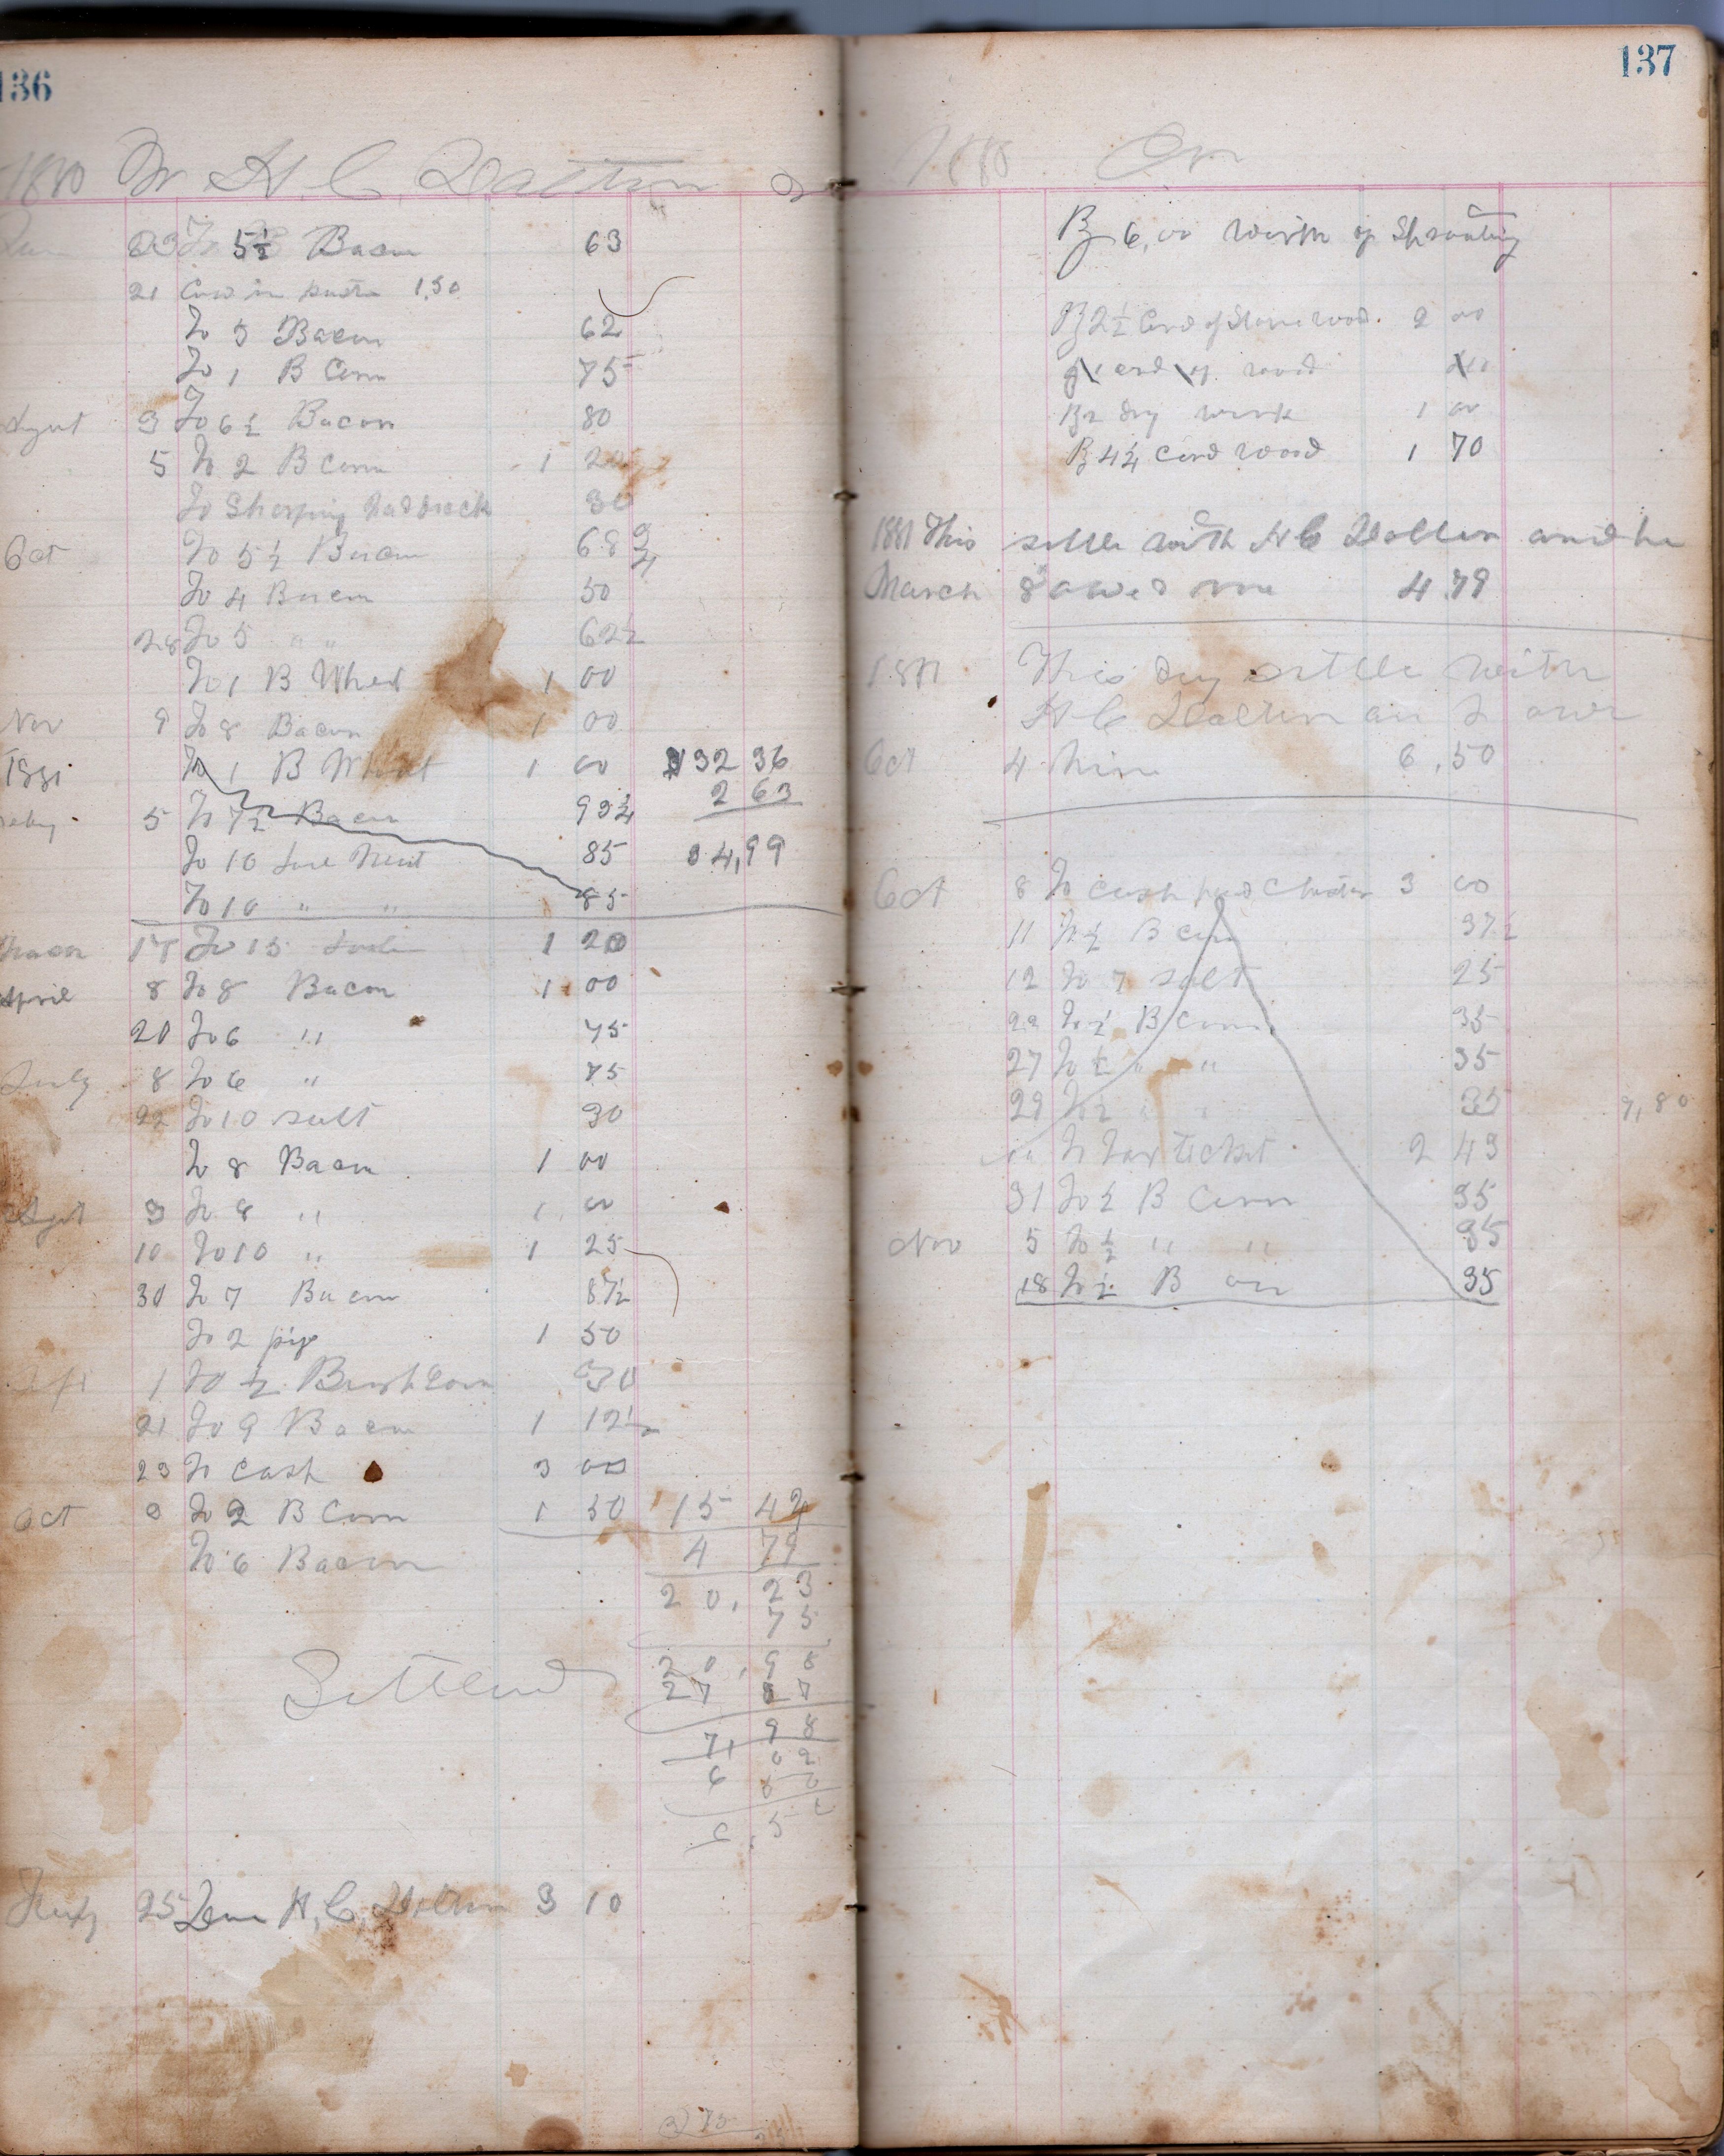 136
1880 Mr H. C. Dalton Dr
23 To 5½ Bacon 63
21 Cow in pastr 1,50
To 5 Bacon 62
To 1 B Corn 75
3 To 6½ Bacon 80
5 To 2 B Corn 1
To Sharping 30
Oct To 5½ Bacon 68¾
To 4 Bacon 50
28 To 5 " " 62½
To 1 B Whet 1 00
Nov 9 To 8 Bacon 1 00
1881 To 1 B Wheat 1 00 $32 36
5 To 7½ Bacon 93¾ 2 63
To 10 85 34,99
To 10 " " 85
17 To 15 1 20
April 8 To 8 Bacon 1 00
20 To 6 " 75
July 8 To 6 " 75
22 To 10 salt 30
To 8 Bacon 1 00
3 To 8 " 1 00
10 To 10 " 1 25
30 To 7 Bacon 87½
To 2 pigs 1 50
1 To ½ Bush Corn
21 To 9 Bacon 1 12½
23 To Cash 3 00
Oct 3 To 2 B Corn 1 50 15 44
To 6 Bacon 4 79
20,23
75
Settled 20,98
27
98
25 H, C, Dolton 3 10
137
1880 Cr
By 6,00 worth of Sprouting
By 2½ Cord of Stove wood 2 00
cord of wood
By 2 Day work 1 00
By 4¼ Cord Wood 1 70
1881 This settle with H C Dolton and he
March 8 owed me 4.79
1881 This day settle with
H C Dolton an I owe
Oct 4 him 6,50
Oct 8 To Cash 3 00
11 To ½ B corn 37½
12 To 7 salt 25
22 To ½ B Corn 35
27 To ½ " " 35
29 To ½ " " 35 9,80
To tax ticket 2 43
31 To ½ B Corn 35
Nov 5 To ½ " " 35
18 To ½ B 35